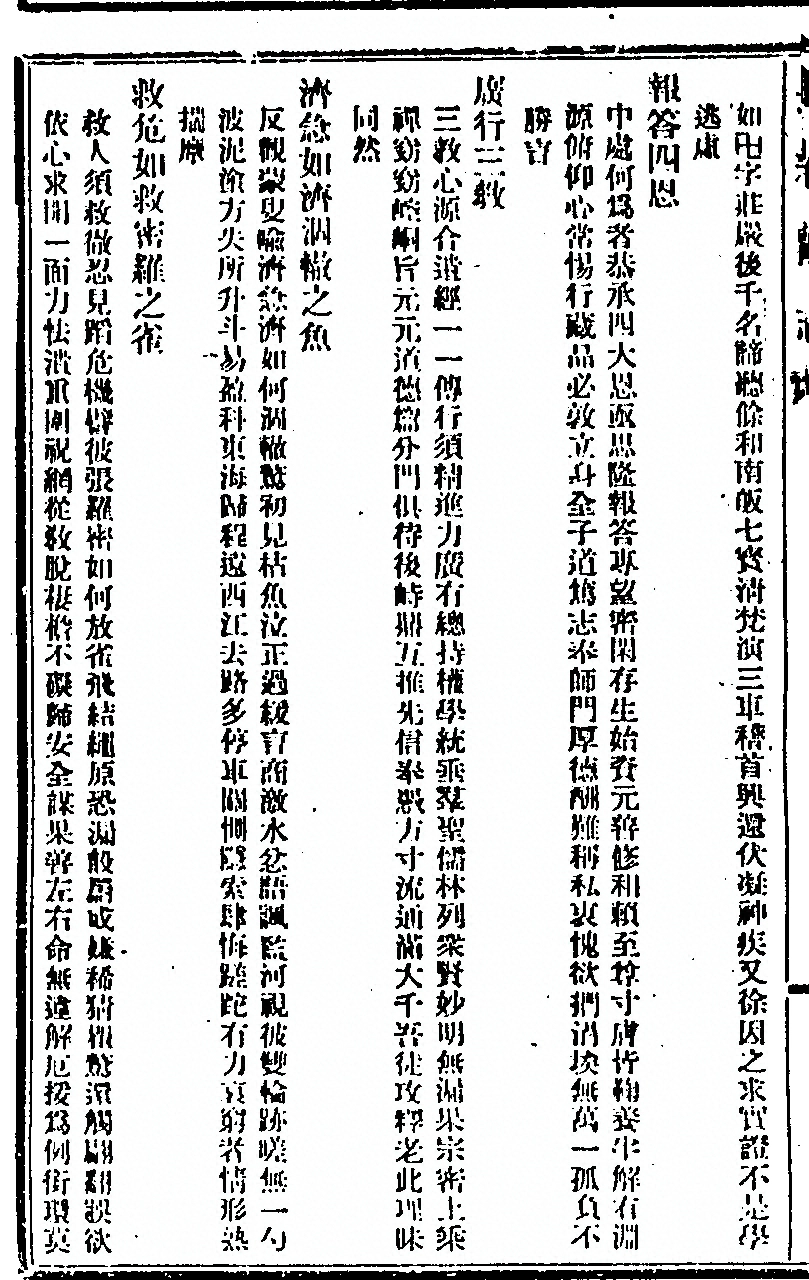 如卍字莊嚴後千名諦聽餘和南皈七寶清梵演三車稽首興還伏凝神疾又徐因之求實證不是學
逃虛
報答四恩
中處何為者恭承四大恩返思隆報答專望密閑存生始資元善修和賴至尊寸膚皆鞠養半解有淵
源俯仰心常惕行藏品必敦立身全子道篤志奉師門厚德酬難稱私衷愧欲捫涓埃無萬一孤負不
勝言
廣行三教
三教心源合遺經一一傳行須精進力廣有總持權學統垂羣聖儒林列眾賢妙明無漏果宗密上乘
禪窈窈崆峒旨元元道德篇分門俱待後峙鼎互推先信奉嚴方寸流通滿大千吾徒攻釋老此理昧
同然
濟急如濟涸轍之魚
反觀蒙叟喻濟急濟如何涸轍驚初見枯魚泣正過緩言商激水忿語諷監河視彼雙輪跡嗟無一勺
波泥塗方失所升斗易盈科東海歸程遠西江去路多停車關惻隱索肆悔蹉跎有力哀窮者情形熟
揣摩
救危如救密羅之雀
救人須救微忍見蹈危機譬彼張羅密如何放雀飛結繩原恐漏設罻或嫌稀猜報驚還觸翩翻誤欲
依心求開一面力怯潰重圍祝網從教脫棲檐不礙歸安全謀果善左右命無違解厄援為例銜環莫